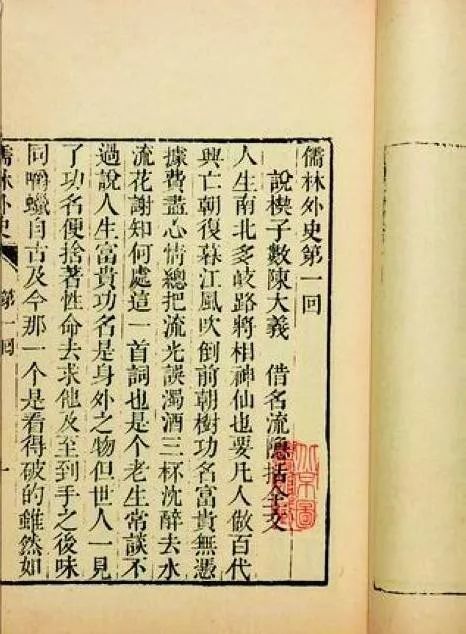 儒林外史第一回
說楔子敷陳大義　借名流隱括全文
人生南北多歧路將相神仙也要凡人做百代
興亡朝復暮江風吹倒前朝樹功名富貴無憑
據費盡心情總把流光誤濁酒三杯沈醉去水
流花謝知何處這一首詞也是个老生常談不
過說人生富貴功名是身外之物但世人一見
了功名便捨著性命去求他及至到手之後味
同嚼蠟自古及今那一个是看得破的雖然如
儒林外史　第一回　一